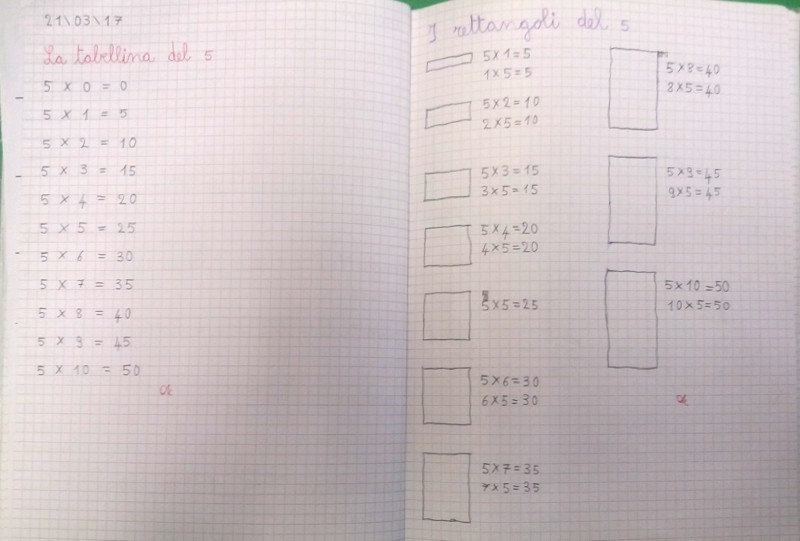 21\03\17
La tabellina del 5
5 × 0 = 0
5 × 1 = 5
5 × 2 = 10
5 × 3 = 15
5 × 4 = 20
5 × 5 = 25
5 × 6 = 30
5 × 7 = 35
5 × 8 = 40
5 × 9 = 45
5 × 10 = 50
I rettangoli del 5
5×1=5
1×5=5
5×2=10
2×5=10
5×3=15
3×5=15
5×4=20
4×5=20
5×5=25
5×6=30
6×5=30
5×7=35
7×5=35
5×8=40
8×5=40
5×9=45
9×5=45
5×10=50
10×5=50